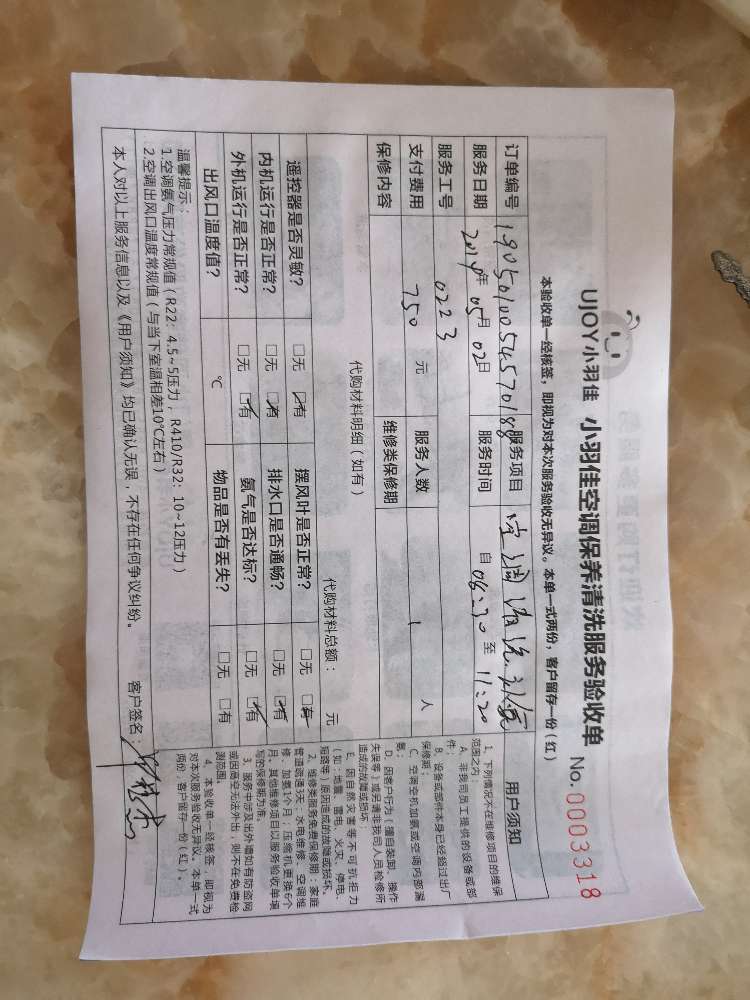 UJOY小羽佳 小羽佳空调保养清洗服务验收单 No. 0003318
本验收单一经核签,即视为对本次服务验收无异议。本单一式两份,客户留存一份(红)
订单编号 1905010054570188 服务项目 空调清洗.
服务日期 2019年05月02日 服务时间 自08:30至11:20
服务工号 0223
支付费用 750 元 服务人数 1 人
保修内容 维修类保修期
代购材料明细(如有) 代购材料总额: 元
遥控器是否灵敏? □无 □有 摆风叶是否正常? □无 □有
内机运行是否正常? □无 □有 排水口是否通畅? □无 □有
外机运行是否正常? □无 □有 氨气是否达标? □无 □有
出风口温度值? ℃ 物品是否有丢失? □无 □有
温馨提示:
1.空调氨气压力常规值(R22:4.5~5压力,R410/R32:10~12压力)
2.空调出风口温度常规值(与当下室温相差10℃左右)
本人对以上服务信息以及《用户须知》均已确认无误,不存在任何争议纠纷。 客户签名:
用户须知
1、下列情况不在维修项目的维保
范围之内:
A、非我司员工提供的设备或部
件;
B、设备或部件本身已经超过出厂
保修期;
C、空调空机加氨或空调内部漏
氨;
D、因客户行为(擅自装卸、操作
失误等)或另请非我司人员检修所
造成的故障或损坏;
E、因自然灾害等不可抗拒力
(如:地震、雷电、火灾、停电、
短路等)原因造成的故障或损坏。
2、维修类服务免费保修期:家庭
管道疏通3天;水电维修、空调维
修、加氨1个月;压缩机更换6个
月。其他维修项目以服务验收单填
写的保修期为准。
3、服务中涉及出外墙如有防盗网
或因悬空无法外出,则不在免费检
测范围。
4、本验收单一经核签,即视为
对本次服务验收无异议。本单一式
两份,客户留存一份(红)。